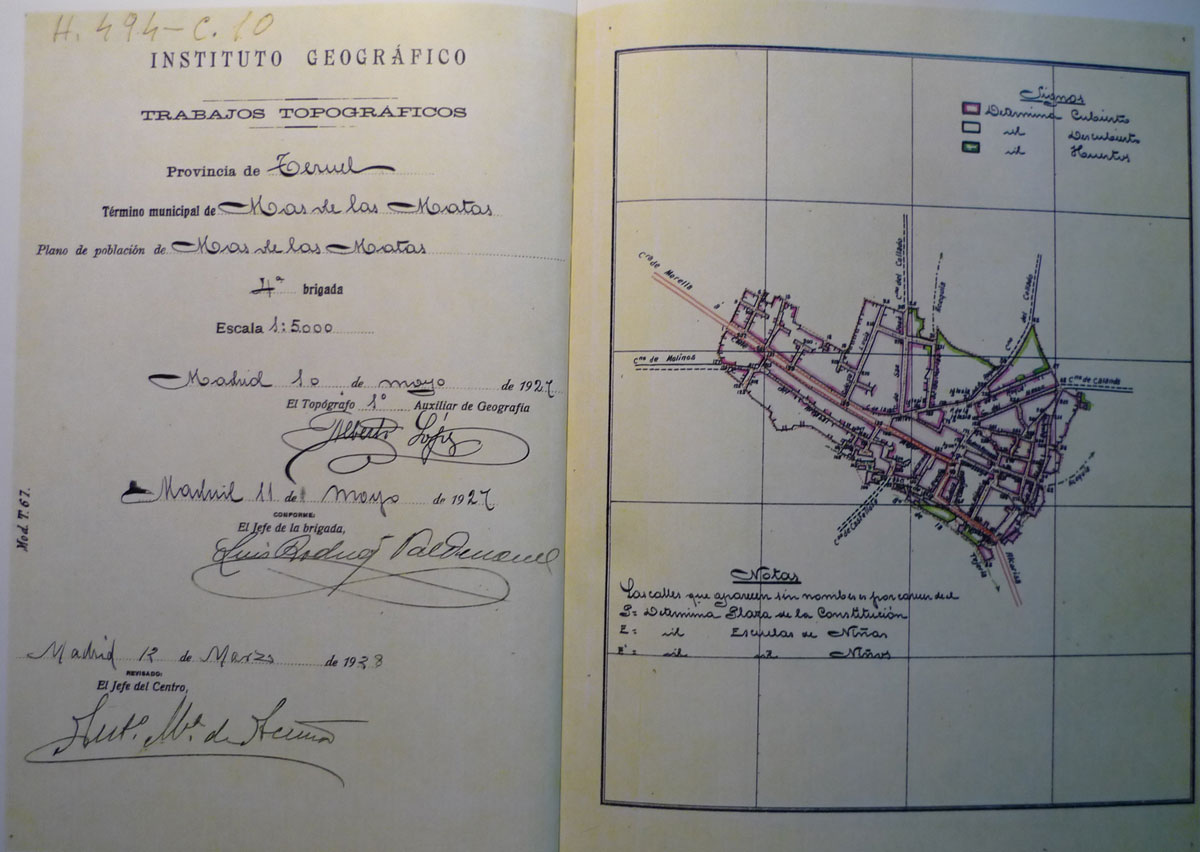 H. 494-C. 10
INSTITUTO GEOGRÁFICO
TRABAJOS TOPOGRÁFICOS
Provincia de Teruel
Término municipal de Mas de las Matas
Plano de población de Mas de las Matas
4ª brigada
Escala 1:5.000
Madrid 10 de mayo de 1927
El Topógrafo 1º Auxiliar de Geografía
Alberto López
Madrid 11 de mayo de 1927
CONFORME:
El Jefe de la brigada,
Luis
Madrid 12 de Marzo de 1928
REVISADO:
El Jefe del Centro,
Antº Mª de
Mod. T. 67.
Signos
Determina Cubierto
id Descubierto
id Huertos
Cra de Morella
Cno de Molinos
Cno del Collado
Acequia
Cno del Collado
Cno de Calanda
Acequia
Cno de Castellote
Cno de la Tejería
Alcorisa
Notas
Las calles que aparecen sin nombre es por carecer de él
P= Determina Plaza de la Constitución
E= id Escuelas de Niñas
E'= id id Niños